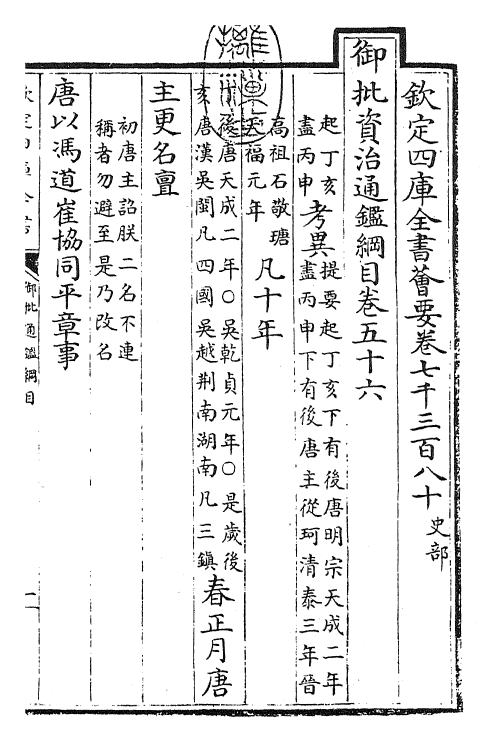 欽定四庫全書薈要卷七千三百八十 史部
御批資治通鑑綱目卷五十六
起丁亥
盡丙申
考異
提要起丁亥下有後唐明宗天成二年
盡丙申下有後唐主從珂清泰三年晉
高祖石敬瑭
天福元年
凡十年
丁後唐天成二年○吳乾貞元年○是歲後
亥唐漢吳閩凡四國吳越荆南湖南凡三鎮
春正月唐
主更名亶
初唐主詔朕二名不連
稱者勿避至是乃改名
唐以馮道崔協同平章事
御批通鑑綱目
一